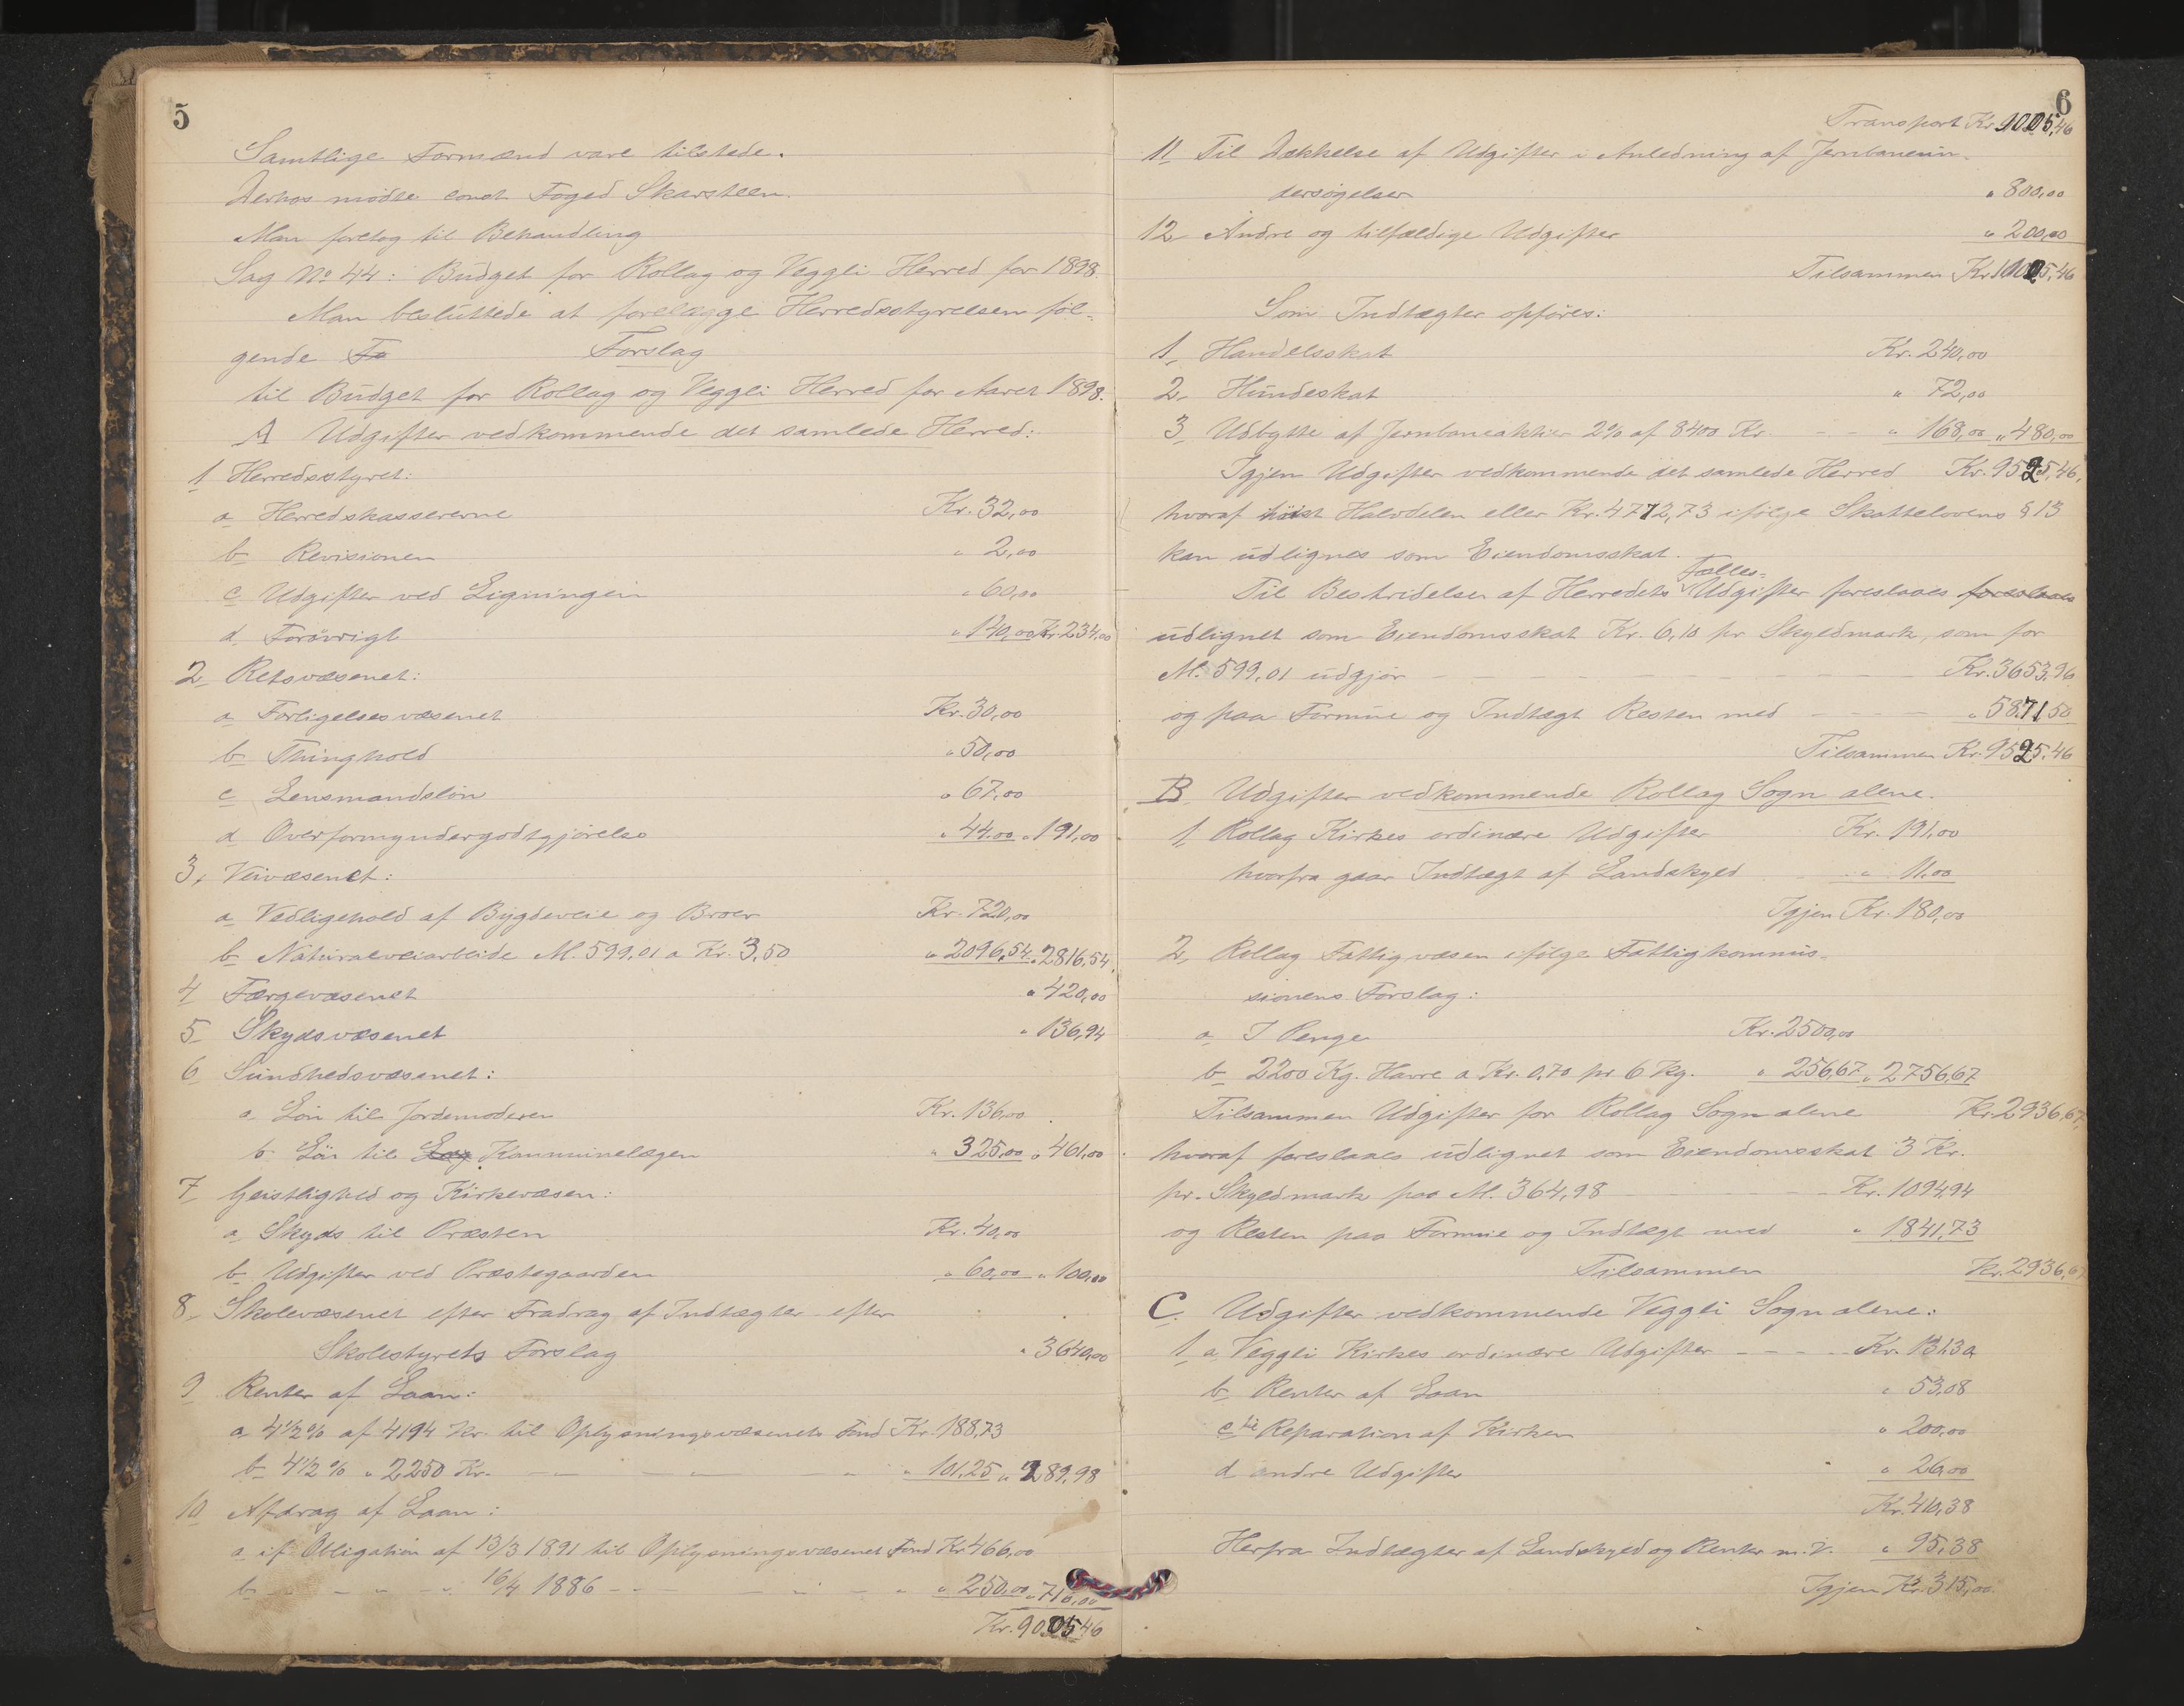 5
Samtlige Formænd vare tilstede.
Derhos mødte const Foged Skarsteen.
Man foretog til Behandling
Sag No 44: Budget for Rollag og Veggli Herred for 1898.
Man besluttede at forelægge Herredsstyrelsen føl-
gende Fo Forslag
til Budget for Rollag og Veggli Herred for Aaret 1898.
A Udgifter vedkommende det samlede Herred:
1 Herredsstyret:
a Herredskassererne Kr. 32,00
b Revisionen " 2,00
c Udgifter ved Ligningen " 60,00
d Forøvrigt " 140,00 Kr. 234,00
2 Retsvæsenet:
a Forligelsesvæsenet Kr. 30,00
b Thinghold " 50,00
c Lensmandsløn " 67,00
d Overformyndergodtgjørelse " 44.00 " 191,00
3, Veivæsenet:
a Vedligehold af Bygdeveie og Broer Kr. 720,00
b Naturalveiarbeide M. 599,01 a Kr. 3,50 " 2096,54 " 2816,54
4 Færgevæsenet " 420,00
5 Skydsvæsenet " 136,94
6 Sundhedsvæsenet:
a Løn til Jordemoderen Kr. 136,00
b Løn til Læg Kommunelægen " 325,00 " 461,00
7 Geistlighed og Kirkevæsen:
a Skyds til Præsten Kr. 40,00
b Udgifter ved Præstegaarden " 60,00 " 100,00
8, Skolevæsenet efter Fradrag af Indtægter efter
Skolestyrets Forslag " 3640,00
9 Renter af Laan:
a 4 1/2 % af 4194 Kr. til Oplysningsvæsenets Fond Kr. 188,73
b 4 1/2 % " 2250 Kr. " 101,25 " 289,98
10 Afdrag af Laan:
a if Obligation af 13/3 1891 til Oplysningsvæsenets Fond Kr. 466,00
b 16/4 1886 " 250,00 " 716,00
Kr. 9005,46
6
Transport Kr. 9005,46
11 Til Dækkelse af Udgifter i Anledning af Jernbaneun-
dersøgelser " 800,00
12 Andre og tilfældige Udgifter " 200,00
Tilsammen Kr. 10005,46
Som Indtægter opføres:
1, Handelsskat Kr. 240,00
2, Hundeskat " 72,00
3, Udbytte af Jernbaneaktier 2% af 8400 Kr. " 168,00 " 480,00
Igjen Udgifter vedkommende det samlede Herred Kr. 9525,46,
hvoraf høist Halvdelen eller Kr. 4712,73 ifølge Skattelovens § 13
kan udlignes som Eiendomsskat.
Til Bestridelse af Herredets Fælles- Udgifter foreslaaes foreslaaes
udlignet som Eiendomsskat Kr. 6,10 pr Skyldmark, som for
M. 599,01 udgjør Kr. 3653,96
og paa Formue og Indtægt Resten med " 5871,50
Tilsammen Kr. 9525,46
B Udgifter vedkommende Rollag Sogn alene.
1, Rollag Kirkes ordinære Udgifter Kr. 191,00
hvorfra gaar Indtægt af Landskyld " 11,00
Igjen Kr. 180,00
2, Rollag Fattigvæsen ifølge Fattigkommis-
sionens Forslag:
a I Penge Kr. 2500,00
b 2200 Kg. Havre a Kr. 0,70 pr 6 Kg. " 256,67 " 2756,67
Tilsammen Udgifter for Rollag Sogn alene Kr. 2936,67,
hvoraf foreslaaes udlignet som Eiendomsskat 3 Kr.
pr. Skyldmark paa M. 364,98 Kr. 1094,94
og Resten paa Formue og Indtægt med " 1841,73
Tilsammen Kr. 2936,67
C. Udgifter vedkommende Veggli Sogn alene:
1 a Veggli Kirkes ordinære Udgifter Kr. 131,30
b Renter af Laan " 53,08
c til Reparation af Kirken " 200,00
d andre Udgifter " 26,00
Kr. 410,38
Herfra Indtægter af Landskyld og Renter m.v. " 95,38
Igjen Kr. 315,00.